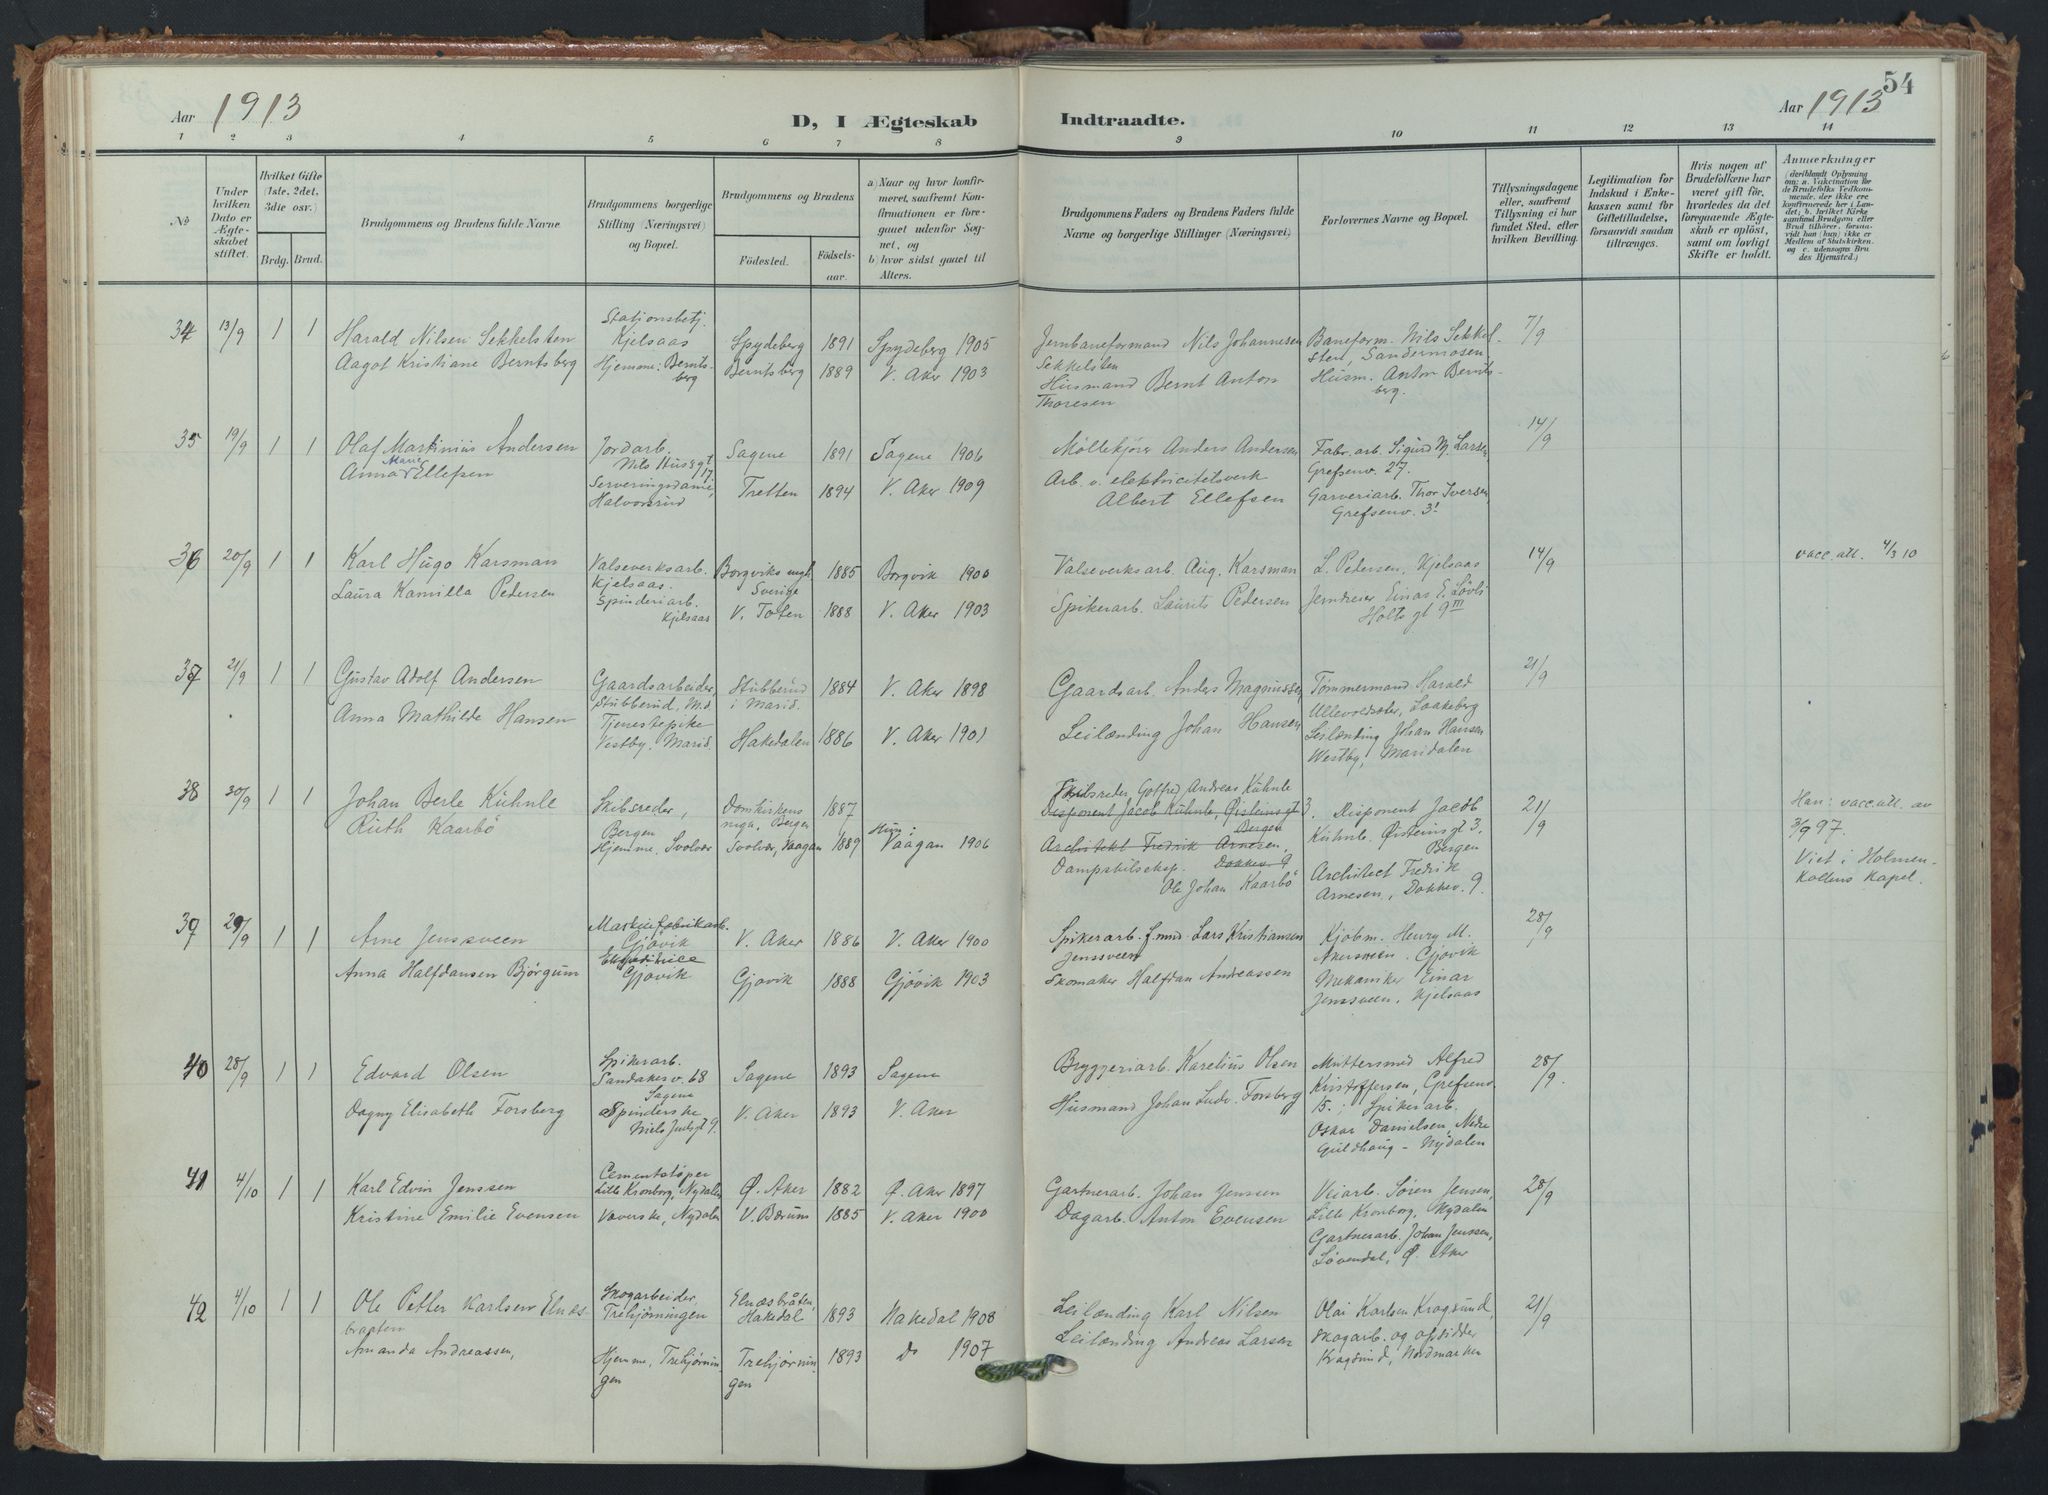 54
Aar 1913
D, I Ægteskab Indtraadte.
Aar 1913
1 2 3 4 5 6 7 8 9 10 11 12 13 14
№
Under hvilken Dato er Ægteskabet stiftet.
Hvilket Gifte (1ste, 2det, 3die osv.)
Brdg. Brud.
Brudgommens og Brudens fulde Navne
Brudgommens borgerlige Stilling (Næringsvei) og Bopæl.
Brudgommens og Brudens
Födested.
Födselsaar.
a) Naar og hvor konfirmeret, saafremt Konfirmationen er foregaaet udenfor Sognet, og
b) hvor sidst gaaet til Alters.
Brudgommens Faders og Brudens Faders fulde Navne og borgerlige Stillinger (Næringsvei)
Forlovernes Navne og Bopæl.
Tillysningsdagene eller, saafremt Tillysning ei har fundet Sted, efter hvilken Bevilling.
Legitimation for Indskud i Enkekassen samt for Giftetilladelse, forsaavidt saadan tiltrænges.
Hvis nogen af Brudefolkene har været gift før, hvorledes da det foregaaende Ægteskab er oplöst, samt om lovligt Skifte er holdt.
Anmærkninger
(deriblandt Oplysning om: a. Vakcination for de Brudefolks Vedkommende, der ikke ere konfirmerede her i Landet; b. hvilket Kirkesamfund Brudgom eller Brud tilhörer, forsaavidt han (hun) ikke er Medlem af Statskirken, og c. udensogns Brudes Hjemsted.)
34 13/9 1 1
Harald Nilsen Sekkelsten
Aagot Kristiane Berntsberg
Stationsbetj.
Kjelsaas
Hjemme: Berntsberg
Spydeberg 1891 Spydeberg 1905
Berntsberg 1889 V. Aker 1903
Jernbaneformand Nils Johannesen
Sekkelsten
Husmand Bernt Anton
Thoresen
Baneform. Nils Sekkelsten, Sandermosen
Husm. Anton Berntsberg.
7/9
35 19/9 1 1
Olaf Martinius Andersen
Anna Marie Ellefsen
Jordarb.
Nils Huss gt 17
Serveringsdame,
Halvorsrud
Sagene 1891 Sagene 1906
Tretten 1894 V. Aker 1909
Möllekjörer Anders Andersen
Arb. v. elektricitetsverk
Albert Ellefsen
Fabr. arb. Sigurd M. Larsen,
Grefsenv. 27.
Garveriarb. Thor Iversen,
Grefsenv. 3!
14/9
36 20/9 1 1
Karl Hugo Karsman
Laura Kamilla Pedersen
Valseverksarb.
Kjelsaas.
Spinderiarb.
Kjelsaas
Borgviks mgh
Sverige 1885 Borgvik 1900
V. Toten 1888 V. Aker 1903
Valseverksarb. Aug. Karsman
Spikerarb. Laurits Pedersen
L. Pedersen, Kjelsaas
Jerndreier Einar E. Lövli
Holts gt 9 III
14/9
vacc. att. 4/3 10
37 21/9 1 1
Gustav Adolf Andersen
Anna Mathilde Hansen
Gaardsarbeider,
Stubberud, M.d.
Tjenestepike
Vestby, Marid.
Stubberud
i Marid. 1884 V. Aker 1898
Hakedalen 1886 V. Aker 1901
Gaardsarb. Anders Magnussen
Leilænding Johan Hansen
Tömmermand Harald
Ullevoldsæter, Laakeberg
Leilænding Johan Hansen
Westby, Maridalen
21/9
38 30/9 1 1
Johan Berle Kühnle
Ruth Kaarbö
Skibsreder,
Bergen
Hjemme, Svolvær
Domkirkens
mgh. Bergen 1887
Svolvær, Vaagan 1889
Hun:
Vaagan 1906
Skibsreder, Gotfred Andreas Kühnle
Disponent Jacob Kühnle, Øisteinsgt 3.
Bergen
Architekt Fredrik Arnesen,
Dokkev. 9
Dampskibseksp.
Ole Johan Kaarbö
Disponent Jacob
Kühnle, Øisteinsgt 3,
Bergen
Architect Fredrik
Arnesen, Dokkev. 9.
21/9
Han: vacc. att. av
3/9 97.
Viet i Holmenkollens Kapel.
39 29/9 1 1
Arne Jenssveen
Anna Halfdansen Björgum
Maskinfabrikarb.
Gjövik
Ekspeditrice
Gjövik
V. Aker 1886 V. Aker 1900
Gjövik 1888 Gjövik 1903
Spikerarb. f.md. Lars Kristiansen
Jenssveen
Skomaker Halfdan Andreassen
Kjöbm. Henry M.
Akersveen, Gjövik
Mekaniker Einar
Jenssveen, Kjelsaas
28/9
40 28/9 1 1
Edvard Olsen
Dagny Elisabeth Forsberg
Spikerarb.
Sandakerv. 68
Sagene
Spinderske
Niels Juelsgt 9.
Sagene 1893 Sagene
V. Aker 1893 V. Aker
Bryggeriarb. Karelius Olsen
Husmand Johan Ludv. Forsberg
Muttersmed Alfred
Kristoffersen, Grefsenv.
15.; Spikerarb.
Oskar Danielsen, Nedre
Guldhaug - Nydalen
28/9.
41 4/10 1 1
Karl Edvin Jenssen
Kristine Emilie Evensen
Cementstöper
Lille Kronborg, Nydalen
Væverske, Nydalen
Ø. Aker 1882 Ø. Aker 1897
V. Bærum 1885 V. Aker 1900
Gartnerarb. Johan Jensen
Dagarb. Anton Evensen
Veiarb. Sören Jensen,
Lille Kronborg, Nydalen
Gartnerarb. Johan Jenssen,
Lövendal, Ø. Aker
28/9
42 4/10 1 1
Ole Petter Karlsen Elnæsbraaten
Amanda Andreassen,
Skogarbeider,
Trehjörningen
Hjemme, Trehjörningen
Elnæsbråten,
Hakedal 1893 Hakedal 1908
Trehjörningen 1893 Do 1907
Leilænding Karl Nilsen
Leilænding Andreas Larsen
Olai Karlsen Kragsund,
skogarb. og opsidder
Kragsund, Nordmarken
21/9